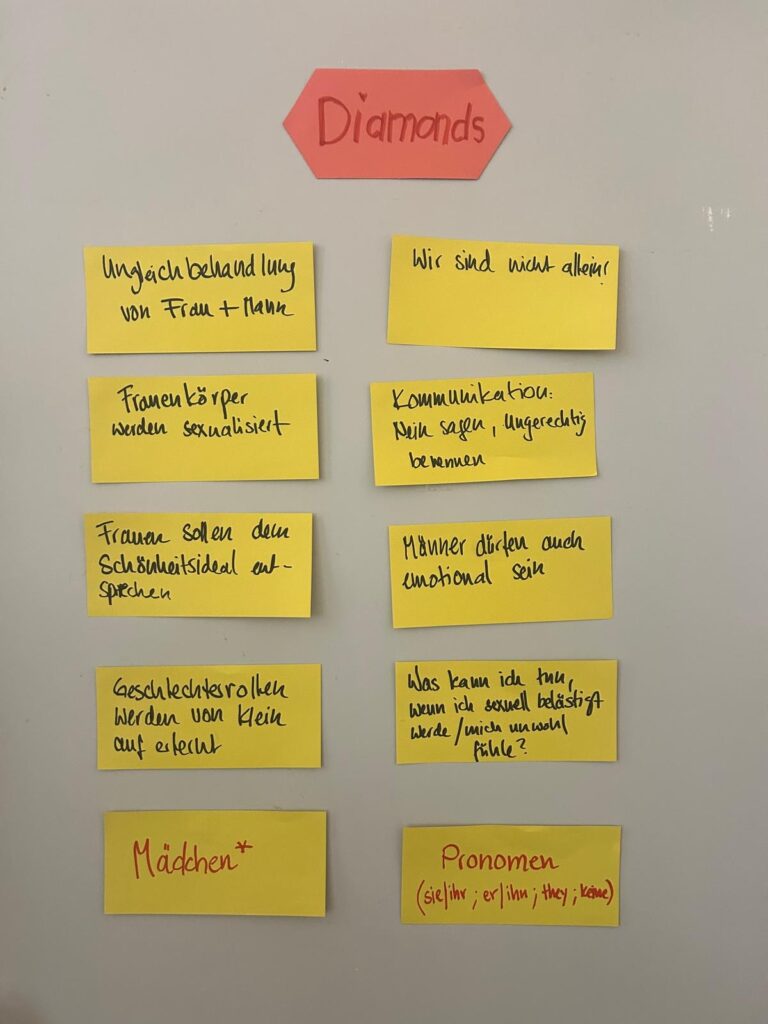 Diamonds
Ungleichbehandlung
von Frau + Mann
Frauenkörper
werden sexualisiert
Frauen sollen dem
Schönheitsideal ent-
sprechen
Geschlechterrollen
werden von klein
auf erlernt
Mädchen*
Wir sind nicht allein!
Kommunikation:
Nein sagen, Ungerechtig
benennen
Männer dürfen auch
emotional sein
Was kann ich tun,
wenn ich sexuell belästigt
werde/mich unwohl
fühle?
Pronomen
(sie/ihr ; er/ihn ; they ; keine)